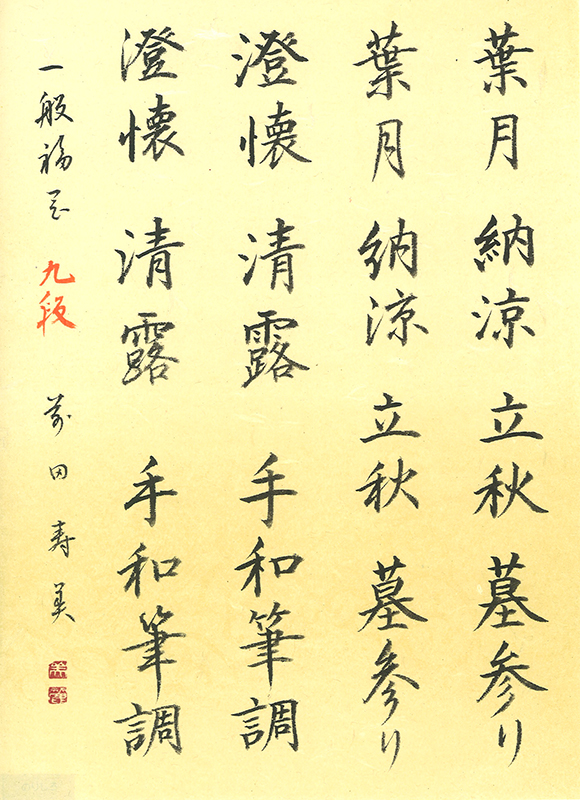 葉月 納涼 立秋 墓参り
葉月 納涼 立秋 墓参り
澄懐 清露 手和筆調
澄懐 清露 手和筆調
一般福 九段 前田寿美